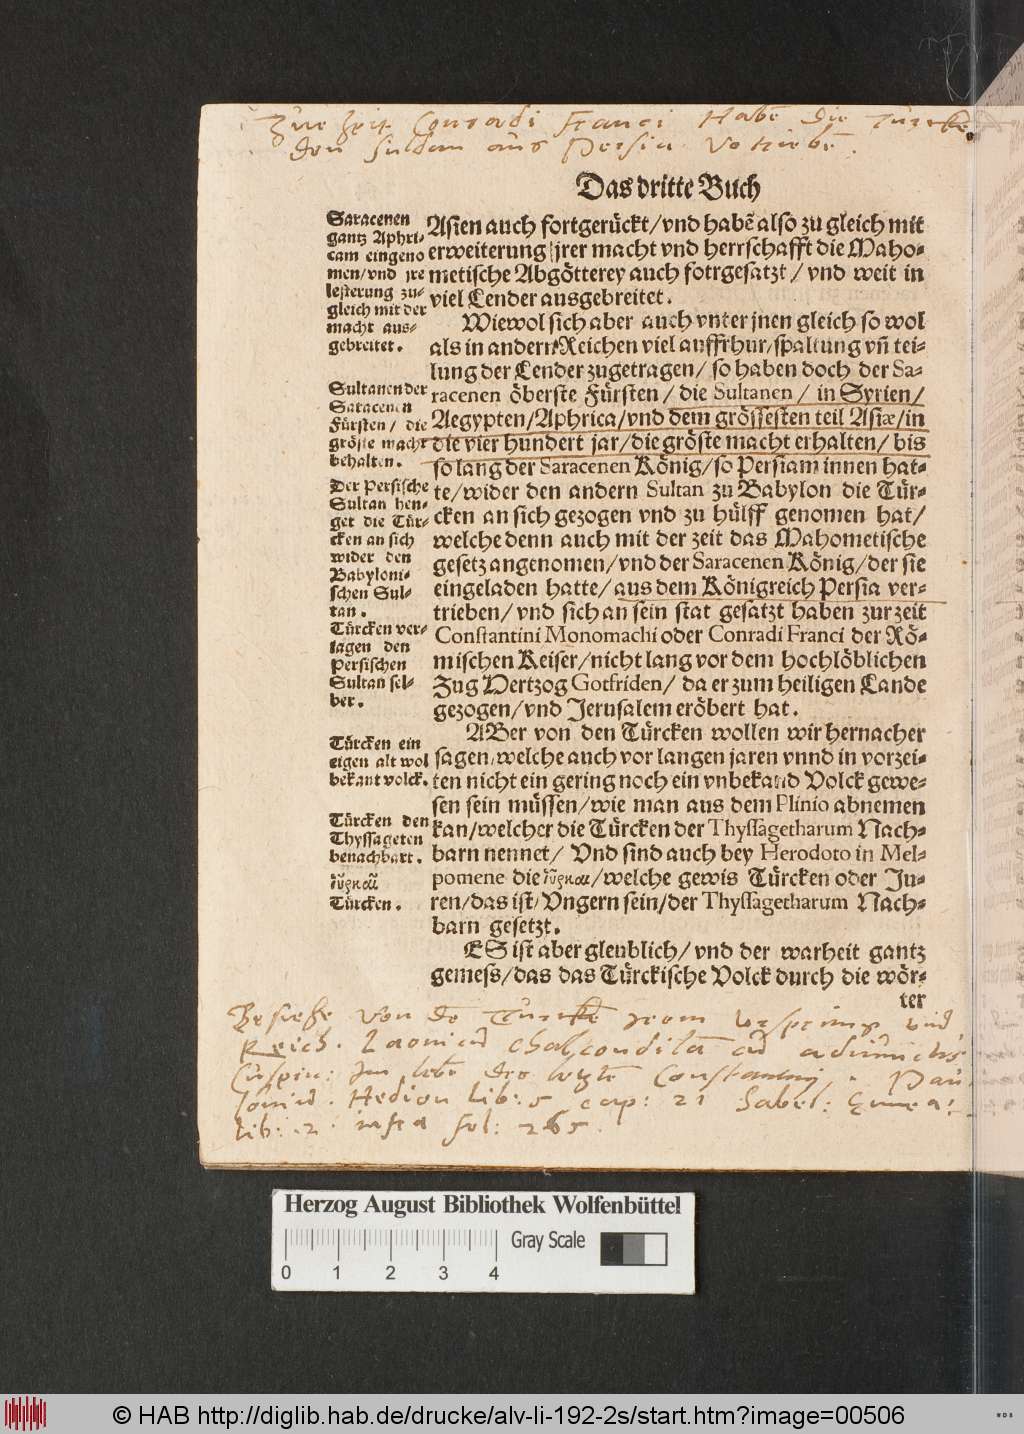 Zur Zeit Conradi Franci Habē die Türcke
den Suldan aus Persia vertriebē.
Das dritte Buch
Saracenen
gantz Aphri-
cam eingeno
men/vnd jre
lesterung zu-
gleich mit der
macht aus-
gebreitet.
Sultanen der
Saracenen
Fürsten / die
gröste macht
behalten.
Der Persische
Sultan hen-
get die Tür-
cken an sich
wider den
Babyloni-
schen Sul-
tan.
Türcken ver-
jagen den
Persischen
Sultan sel-
ber.
Türcken ein
eigen alt wol
bekant volck.
Türcken den
Thyssageten
benachbart.
ἰῦρκαι
Türcken.
Asien auch fortgerückt/vnd habē also zu gleich mit
erweiterung jrer macht vnd herrschafft die Maho-
metische Abgötterey auch fotrgesatzt / vnd weit in
viel Lender ausgebreitet.
Wiewol sich aber auch vnter jnen gleich so wol
als in andern Reichen viel auffrhur/spaltung vñ tei-
lung der Lender zugetragen/ so haben doch der Sa-
racenen öberste Fürsten / die Sultanen / in Syrien/
Aegypten/Aphrica/vnd dem grössesten teil Asiæ/in
die vier hundert jar/die gröste macht erhalten/ bis
so lang der Saracenen König/so Persiam innen hat-
te/wider den andern Sultan zu Babylon die Tür-
cken an sich gezogen vnd zu hülff genomen hat/
welche denn auch mit der zeit das Mahometische
gesetz angenomen/vnd der Saracenen König/der sie
eingeladen hatte/ aus dem Königreich Persia ver-
trieben/ vnd sich an sein stat gesatzt haben zur zeit
Constantini Monomachi oder Conradi Franci der Rö-
mischen Keiser/nicht lang vor dem hochlöblichen
Zug Hertzog Gotfriden/ da er zum heiligen Lande
gezogen/vnd Jerusalem eröbert hat.
ABer von den Türcken wollen wir hernacher
sagen/welche auch vor langen jaren vnnd in vorzei-
ten nicht ein gering noch ein vnbekand Volck gewe-
sen sein müssen/wie man aus dem Plinio abnemen
kan/welcher die Türcken der Thyssagetharum Nach-
barn nennet/ Vnd sind auch bey Herodoto in Mel-
pomene die ἰῦρκαι/welche gewis Türcken oder Ju-
ren/das ist/Vngern sein/der Thyssagetharum Nach-
barn gesetzt.
ES ist aber gleublich/ vnd der warheit gantz
gemess/das das Türckische Volck durch die wör-
ter
Besiehe von dē Türckē jrem vrsprung vnd
Reich. Laonicū Chalcondilā
Cuspin: Im lebē des letztē Constantini, Pau
Jouiū. Hedion Lib: 5 cap: 21 Sabel:
Lib: 2. infra fol: 265.
Herzog August Bibliothek Wolfenbüttel
Gray Scale
0 1 2 3 4
© HAB http://diglib.hab.de/drucke/alv-li-192-2s/start.htm?image=00506